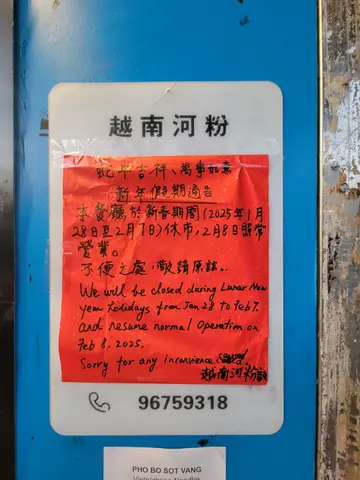 越南河粉
蛇年吉祥、萬事如意
新年假期通告
本餐廳於新春期間(2025年1月
28日至2月7日)休市,2月8日照常
營業。
不便之處,敬請原諒.
We will be closed during Lunar New
year holidays from Jan 28 to Feb 7.
and resume normal Operation on
Feb 8. 2025.
Sorry for any inconvience
越南河粉
96759318
PHO BO SOT VANG
Vietnamese Noodles